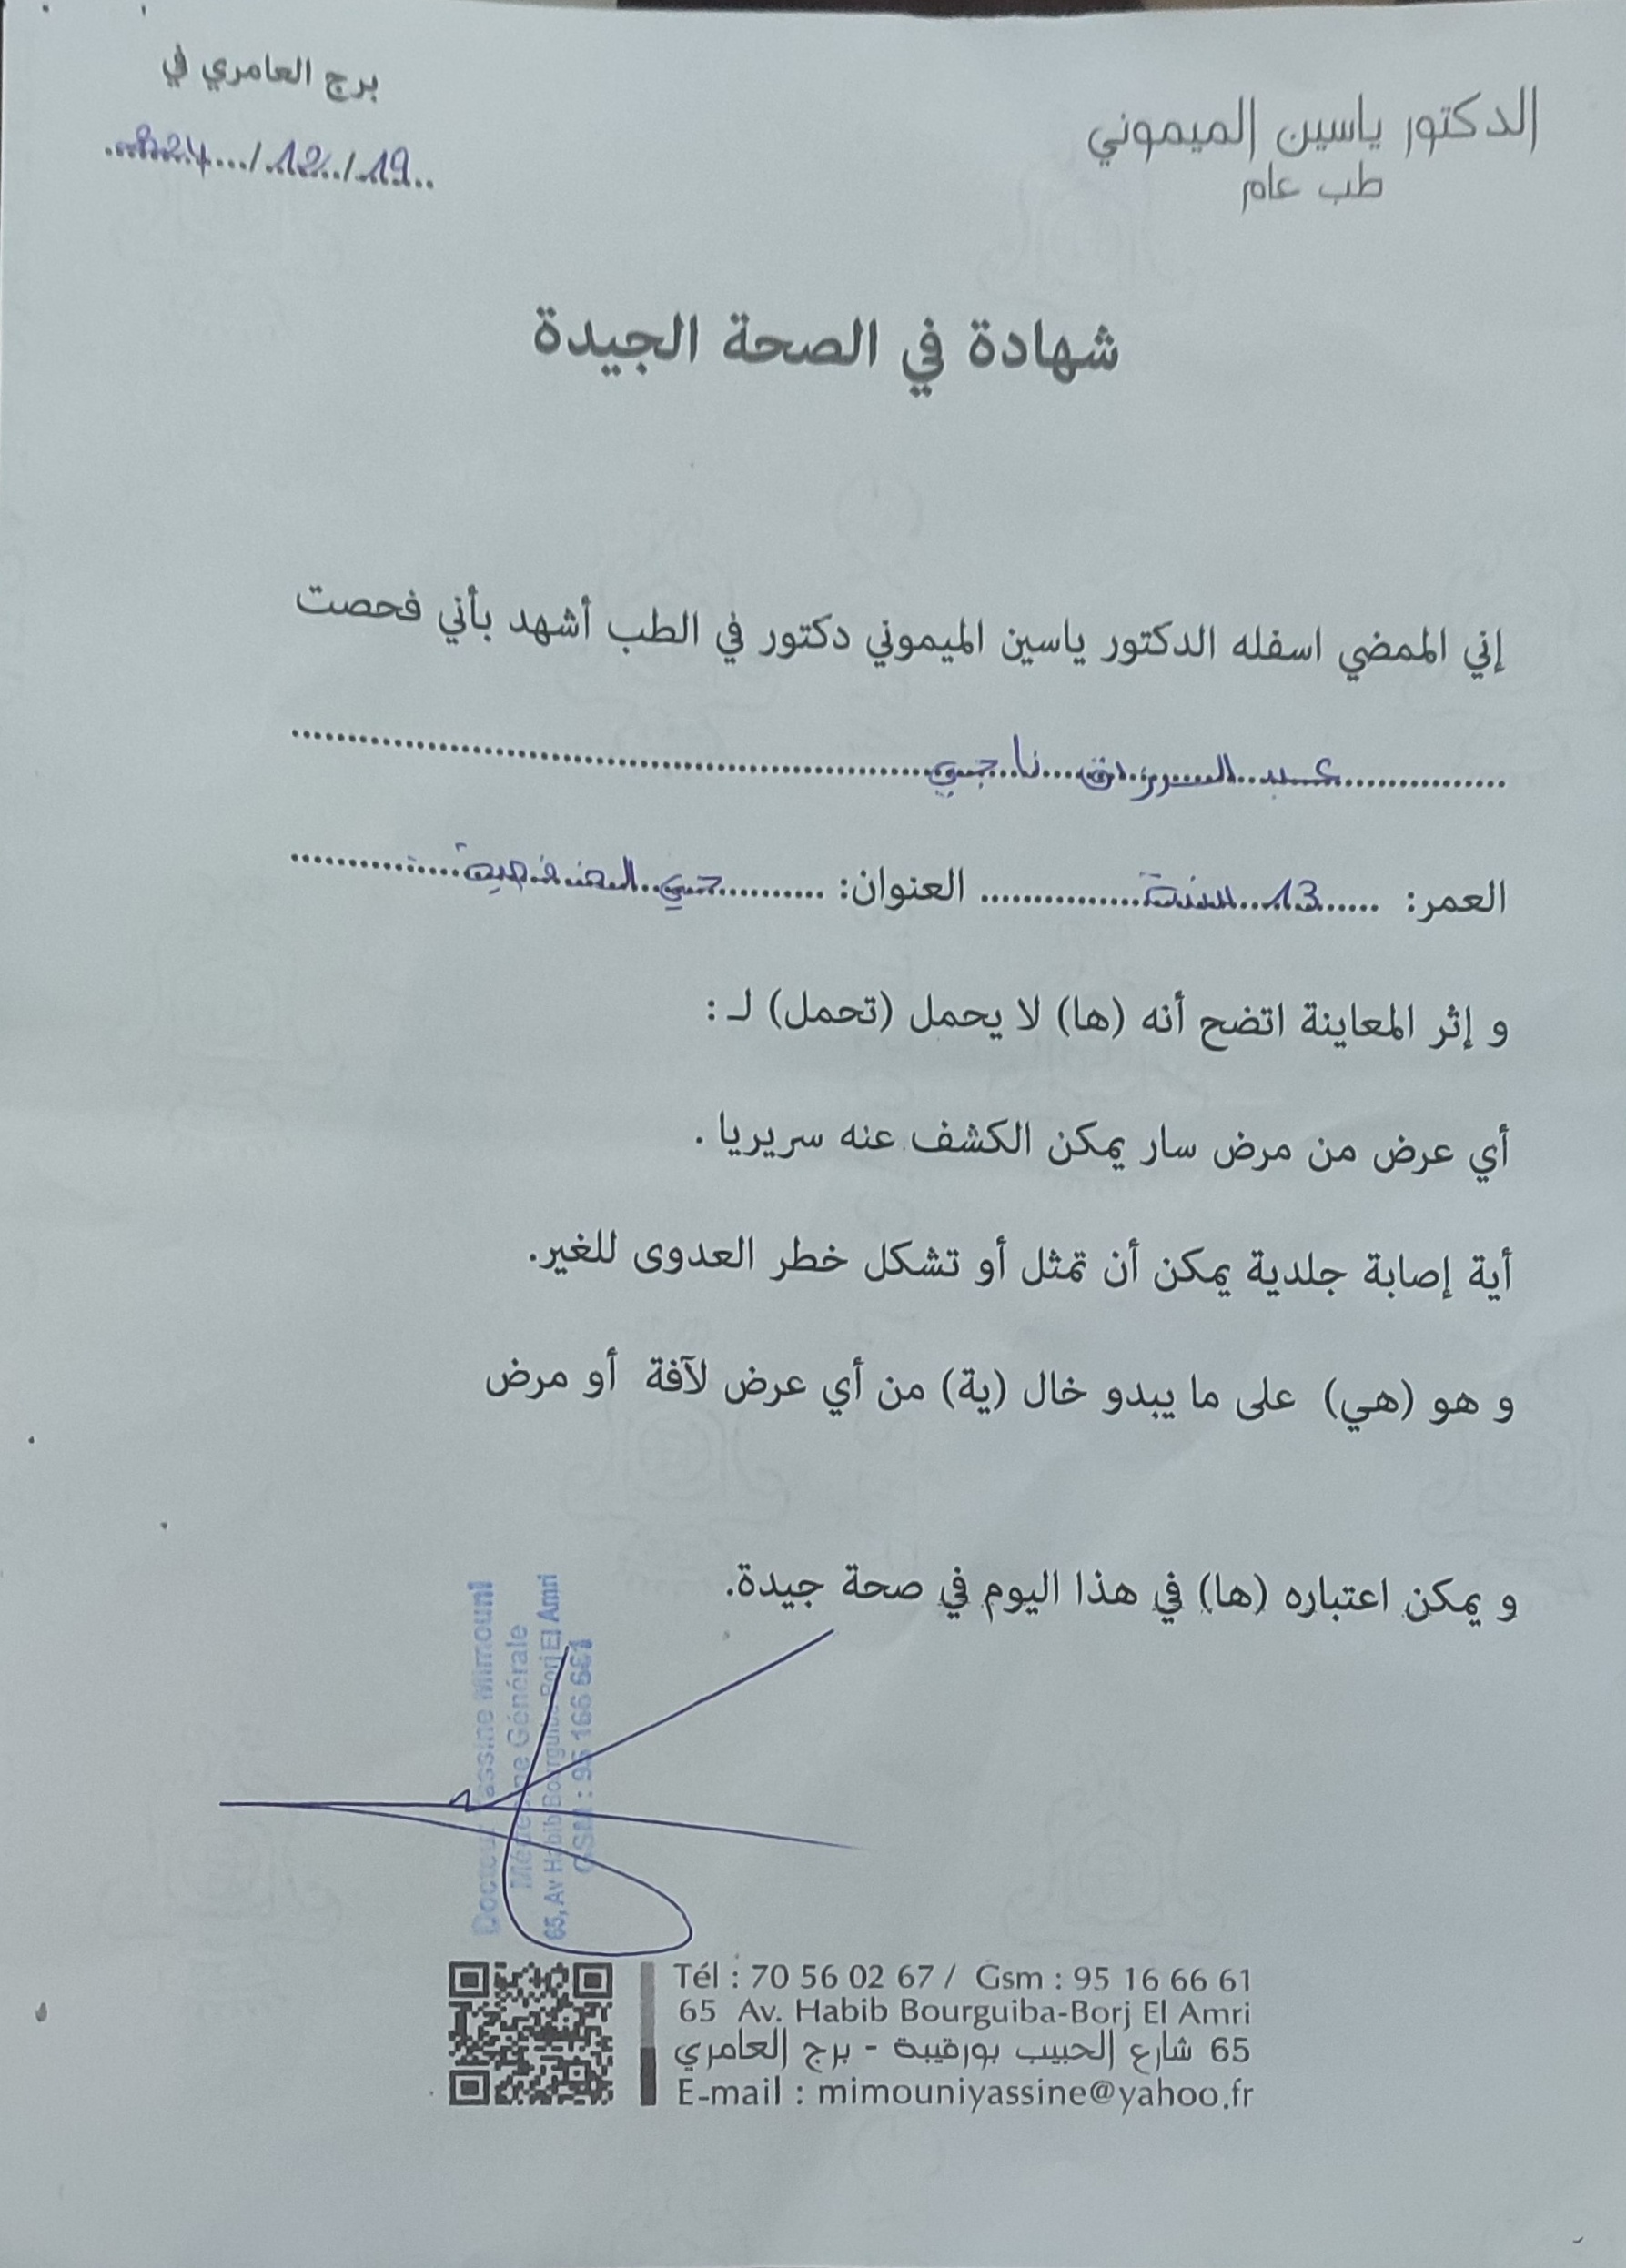 الدكتور ياسين الميموني
طب عام
برج العامري في
19/12/2024
شهادة في الصحة الجيدة
إني الممضي اسفله الدكتور ياسين الميموني دكتور في الطب أشهد بأني فحصت
عبد الرزاق ناجي
العمر: 13 سنة العنوان: حي
و إثر المعاينة اتضح أنه (ها) لا يحمل (تحمل) لـ :
أي عرض من مرض سار يمكن الكشف عنه سريريا .
أية إصابة جلدية يمكن أن تمثل أو تشكل خطر العدوى للغير.
و هو (هي) على ما يبدو خال (ية) من أي عرض لآفة أو مرض
و يمكن اعتباره (ها) في هذا اليوم في صحة جيدة.
Docteur Yassine Mimouni
Médecine Générale
65, Av Habib Bourguiba Borj El Amri
GSM : 95 166 661
Tél : 70 56 02 67 / Gsm : 95 16 66 61
65 Av. Habib Bourguiba-Borj El Amri
65 شارع الحبيب بورقيبة - برج العامري
E-mail : mimouniyassine@yahoo.fr